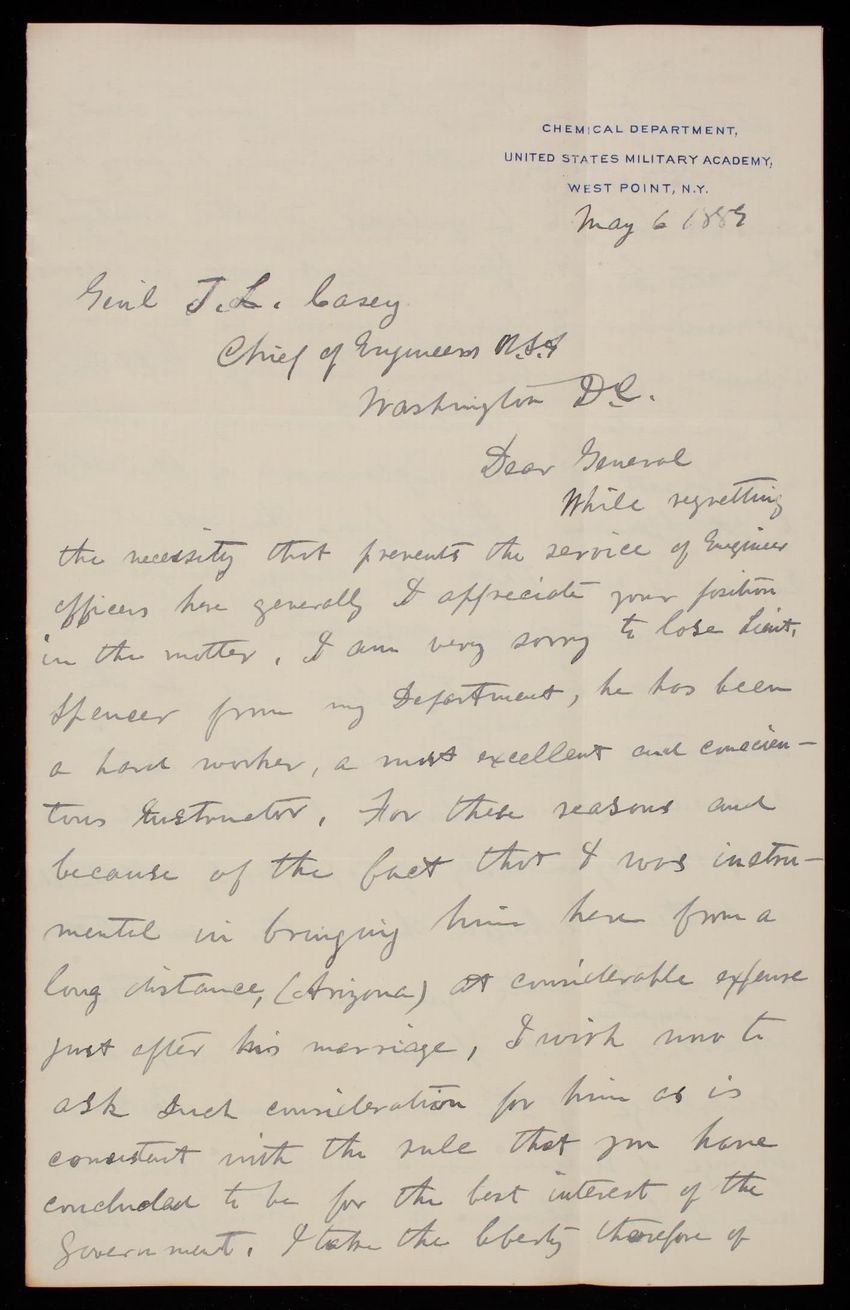 CHEMICAL DEPARTMENT,
UNITED STATES MILITARY ACADEMY,
WEST POINT, N.Y.
May 6 1889
Genl T. L. Casey
Chief of Engineers U.S.A
Washington D.C.
Dear General
While regretting
the necessity that prevents the service of Engineer
officers here generally I appreciate your position
in the matter. I am very sorry to lose Lieut.
Spencer from my Department, he has been
a hard worker, a most excellent and conscien-
tous Instructor. For these reasons and
because of the fact that I was instru-
mental in bringing him here from a
long distance, (Arizona) at considerable expense
just after his marriage, I wish now to
ask such consideration for him as is
consistent with the rule that you have
concluded to be for the best interest of the
Government. I take the liberty therefore of